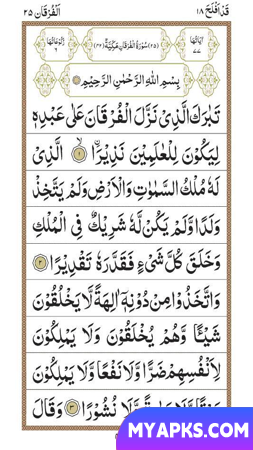 قَدْ اَفْلَحَ ١٨ اَلْفُرْقَان ٢٥
اٰيَاتُهَا ٧٧ (٢٥) سُوْرَةُ الْفُرْقَانِ مَكِّيَّةٌ (٤٢) رُكُوْعَاتُهَا ٦
بِسْمِ اللّٰهِ الرَّحْمٰنِ الرَّحِيْمِ
تَبٰرَكَ الَّذِيْ نَزَّلَ الْفُرْقَانَ عَلٰى عَبْدِهٖ
لِيَكُوْنَ لِلْعٰلَمِيْنَ نَذِيْرًا ۙ ١ الَّذِيْ
لَهٗ مُلْكُ السَّمٰوٰتِ وَالْاَرْضِ وَلَمْ يَتَّخِذْ
وَلَدًا وَّلَمْ يَكُنْ لَّهٗ شَرِيْكٌ فِي الْمُلْكِ
وَخَلَقَ كُلَّ شَيْءٍ فَقَدَّرَهٗ تَقْدِيْرًا ٢
وَاتَّخَذُوْا مِنْ دُوْنِهٖٓ اٰلِهَةً لَّا يَخْلُقُوْنَ
شَيْـًٔا وَّهُمْ يُخْلَقُوْنَ وَلَا يَمْلِكُوْنَ
لِاَنْفُسِهِمْ ضَرًّا وَّلَا نَفْعًا وَّلَا يَمْلِكُوْنَ
وَّلَا نُشُوْرًا ٣ وَقَالَ
MYAPKS.COM